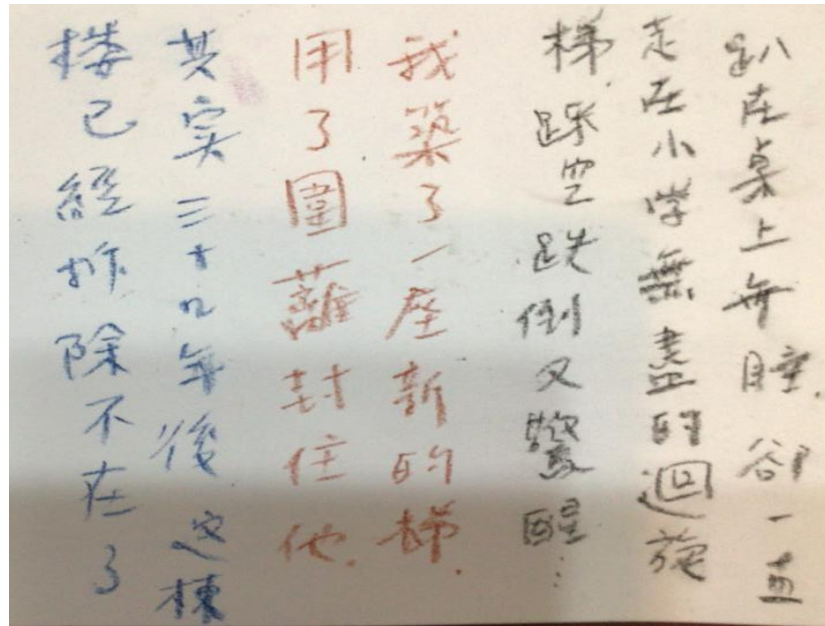 趴在桌上午睡.卻一直
走在小学無盡的迴旋
梯.踩空跌倒又驚醒…
我築了一座新的梯.
用了圍蘺封住他.
其实三十九年後 这棟
楼已經拆除不在了